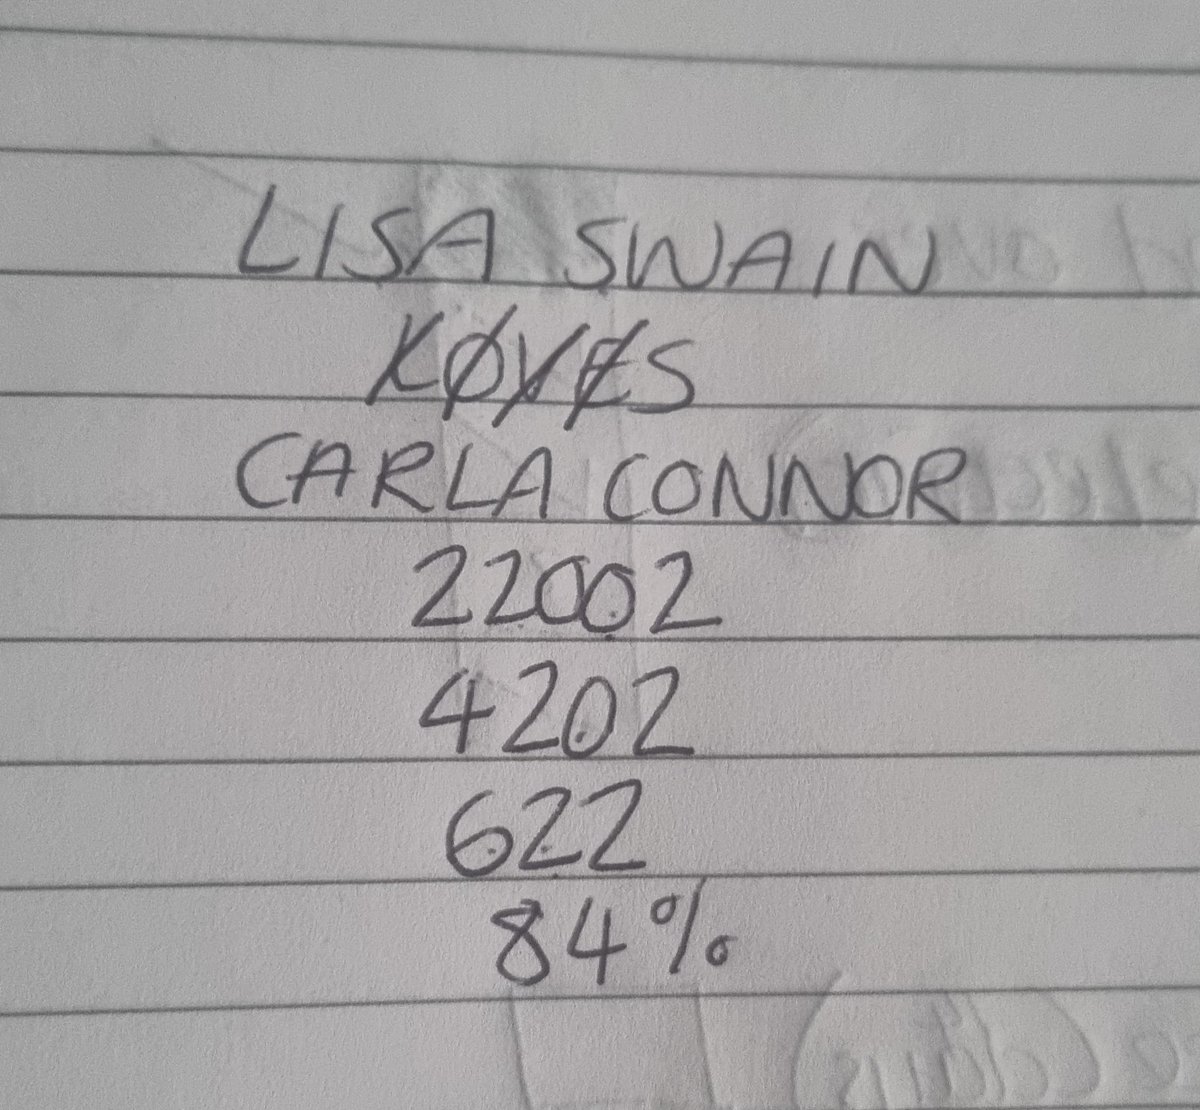 LISA SWAIN
LOVES
CARLA CONNOR
22002
4202
622
84%